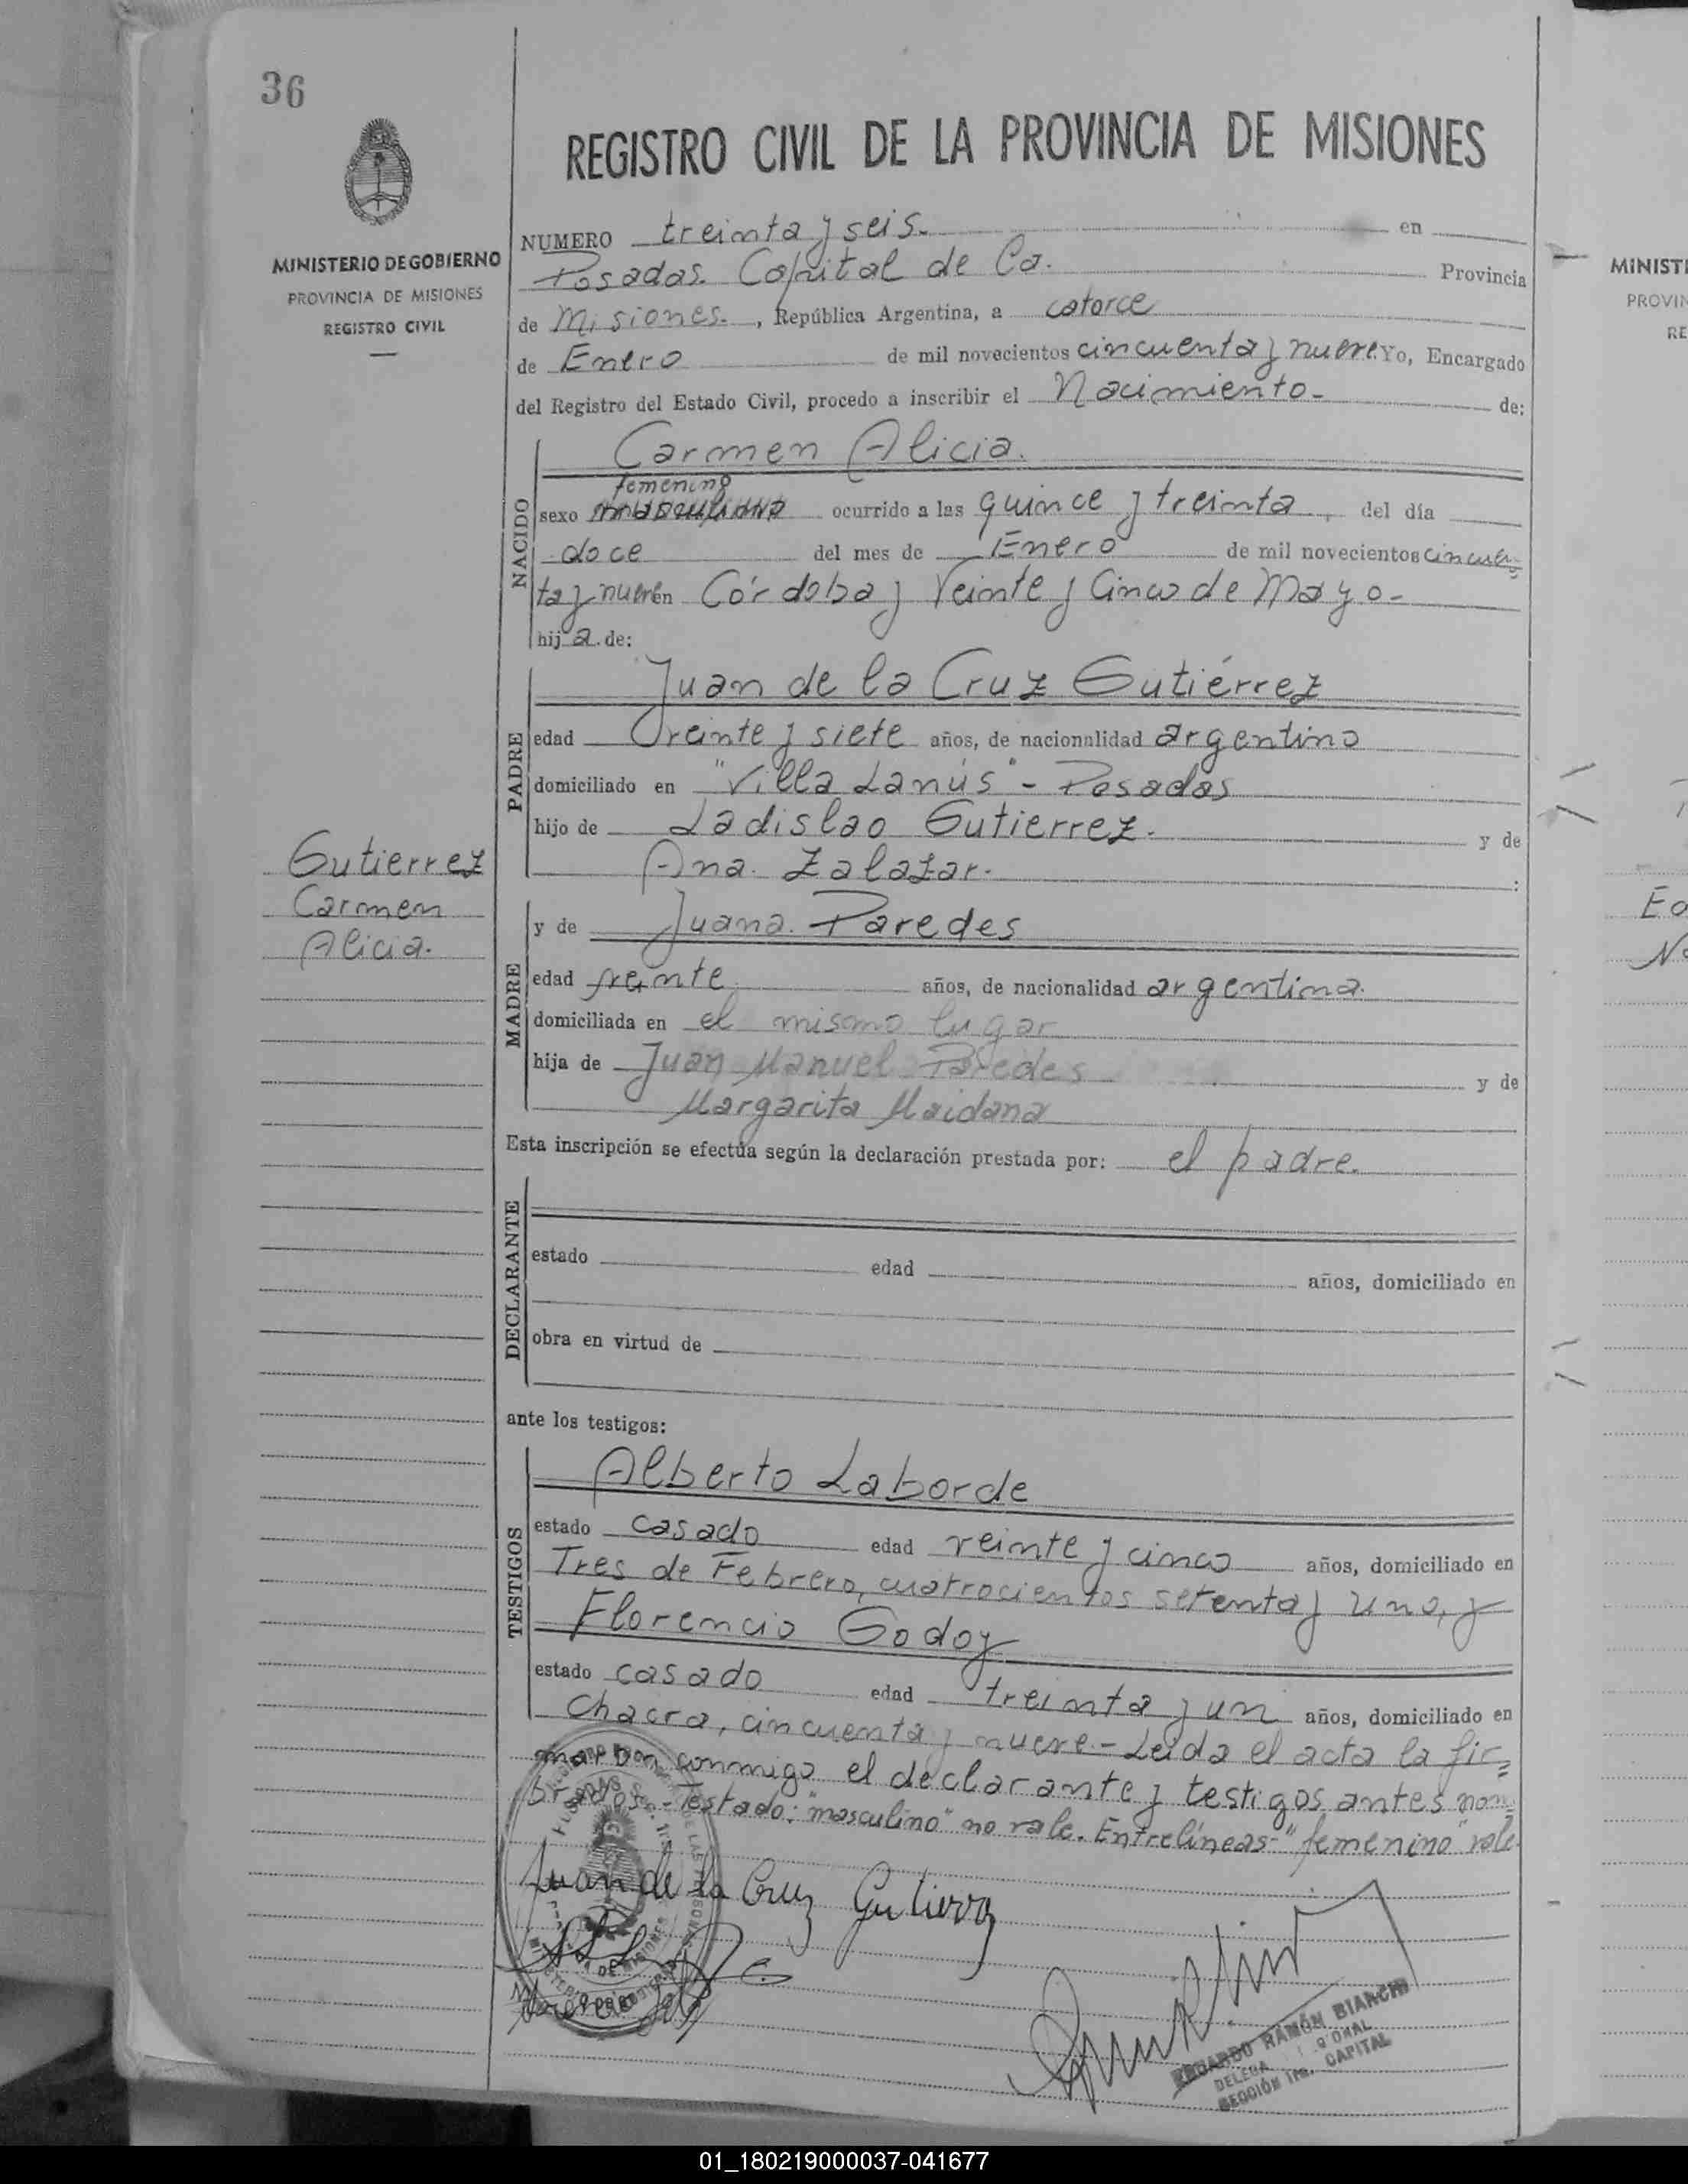 36
REGISTRO CIVIL DE LA PROVINCIA DE MISIONES
MINISTERIO DE GOBIERNO
PROVINCIA DE MISIONES
REGISTRO CIVIL
NUMERO treinta y seis.- en
Posadas. Capital de la. Provincia
de Misiones. , República Argentina, a catorce
de Enero de mil novecientos cincuenta y nueve. Yo, Encargado
del Registro del Estado Civil, procedo a inscribir el Nacimiento.- de:
NACIDO
Carmen Alicia.
femenino
sexo masculino ocurrido a las quince y treinta, del día
doce del mes de Enero de mil novecientos cincuen=
ta y nueve en Córdoba y Veinte y Cinco de Mayo.-
hija de:
PADRE
Juan de la Cruz Gutiérrez
edad veinte y siete años, de nacionalidad argentino
domiciliado en "Villa Lanús" - Posadas
hijo de Ladislao Gutierrez. y de
Ana Zalazar. :
Gutierrez
Carmen
Alicia.
MADRE
y de Juana Paredes
edad veinte años, de nacionalidad argentina.
domiciliada en el mismo lugar
hija de Juan Manuel Paredes y de
Margarita Maidana
Esta inscripción se efectúa según la declaración prestada por: el padre.
DECLARANTE
estado edad años, domiciliado en
obra en virtud de
ante los testigos:
TESTIGOS
Alberto Laborde
estado casado edad veinte y cinco años, domiciliado en
Tres de Febrero, cuatrocientos setenta y uno, y
Florencio Godoy
estado casado edad treinta y un años, domiciliado en
Chacra, cincuenta y nueve.- Leida el acta la fir=
maron conmigo el declarante y testigos antes nom=
brados.- Testado: "masculino" no vale. Entrelíneas: "femenino" vale.
Juan de la Cruz Gutierrez
EDUARDO RAMÓN BIANCHI
SECCIÓN 1ra. CAPITAL
MINISTE
PROVIN
RE
01_180219000037-041677